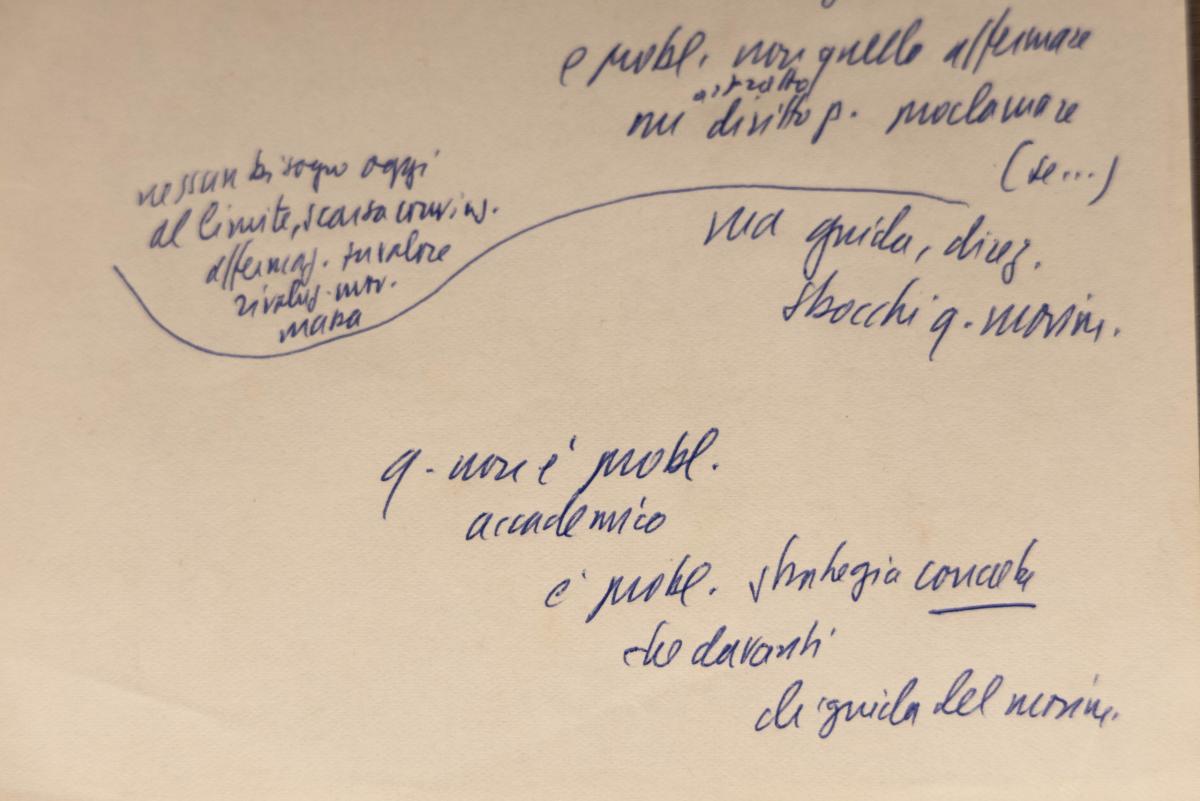 e probl. non quello affermare
astratto
un diritto p. proclamare
(se...)
nessun bisogno oggi
al limite, scarsa convinz.
affermaz. su valore
rivoluz. mov.
massa
ma guida, direz.
sbocchi q. movim.
q. non è probl.
accademico
è probl. strategia concreta
che davanti
di guida del movim.